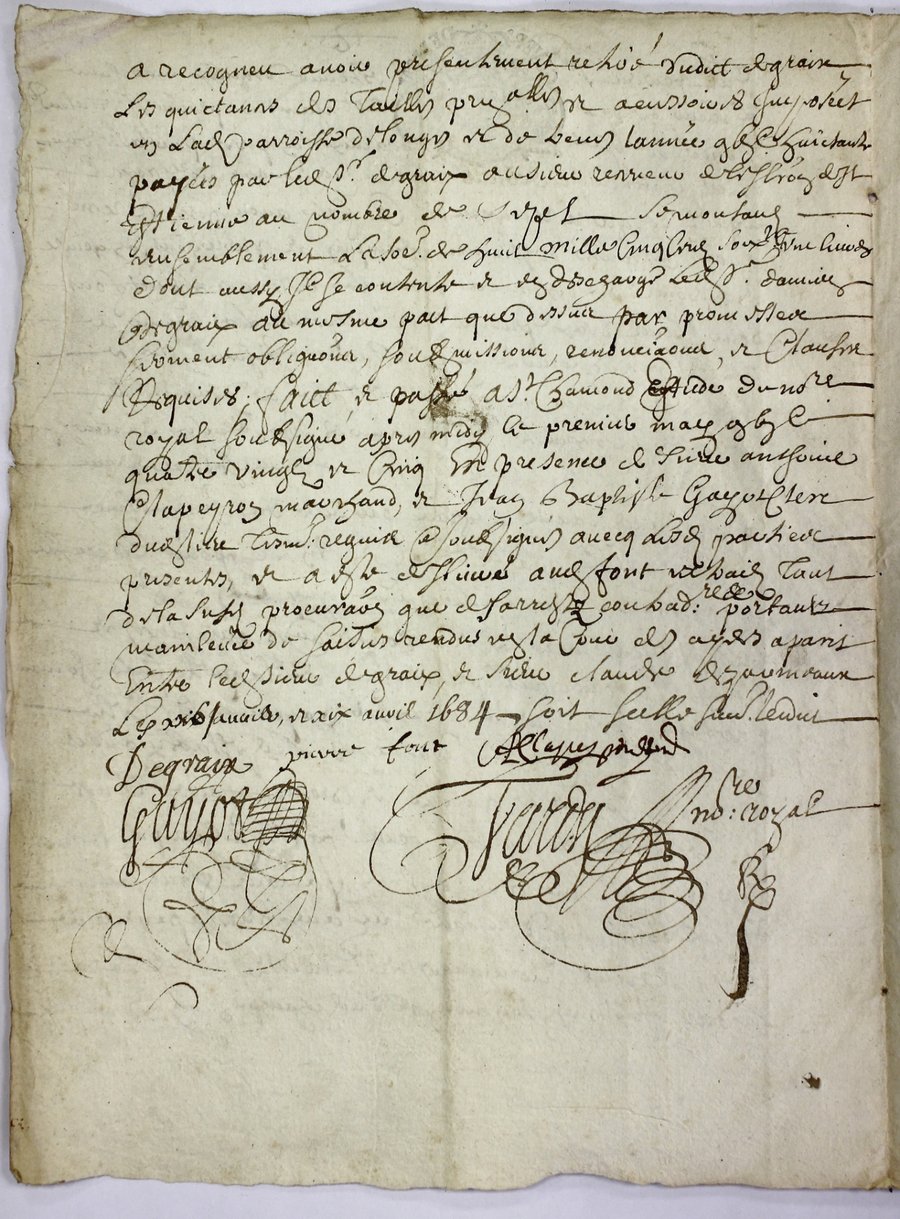 a recogneu avoir presentement retiré dudict degraix
Les quictances des Tailles prnalles et accessoires Imposéez
en Lad parroisse delonges et de l'année gbjc huictante
payées par led Sr. degraix au sieur receveur de l'eslection de St
Estienne au nombre de sept se montant
ensemblement La so.e de huict mille Cinq Cens soixte une livres
dont aussy Il se contente et en descharge led Sr.
degraix du mesme pact que dessus par promesses
serment obligaõns, soubzmissions, renonciaõns, et Clauses
Requises; faict et passé a St. Chamond Estude du nore
royal soubsigné apres midy le premier may gbjc
quatre vingtz et Cinq En presence de sieur anthoine
Clapeyron marchand, et Jean Baptiste Gayot Clerc
dud Tesm. requis soubsignés avecq Lesd parties
presentes, et a esté deslivré aud font tant
de la susd procuraõn que de larrest contrad.re portant
mainlevée de saisies rendu en la Cour des aydes a paris
Entre led sieur degraix, et sieur claude
Les janvier, et six avril 1684 soit seellé suivt. ledict
Degraix pierre font Clapeyron
Gayot Tardy nore: royal